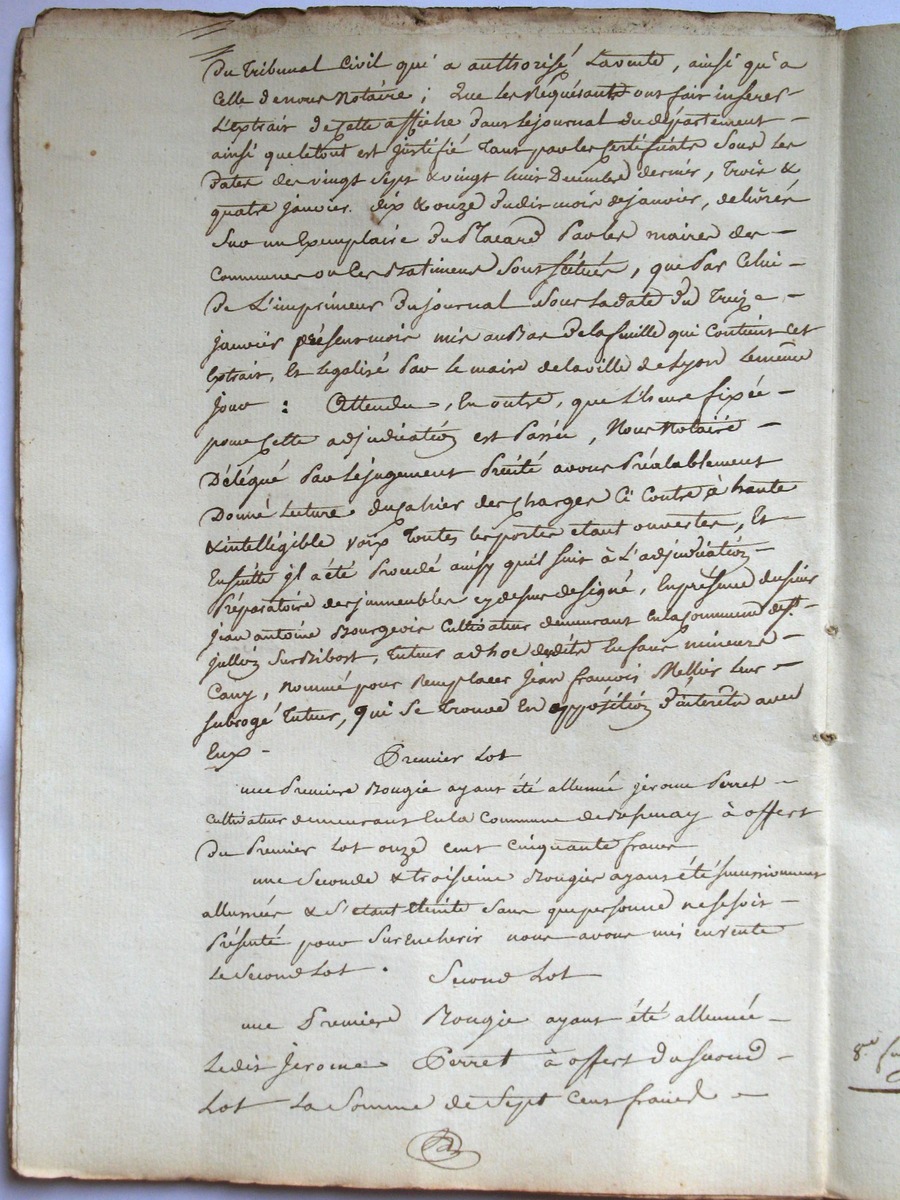 Du Tribunal Civil qui a authorisé La vente, ainsi qu'a
Celle de nous Notaire ; Que les Requérants ont fait inserer
L'extrait de Cette affiche dans le journal du département
ainsi que le tout est justifié tant par les Certificats sous les
Dates des vingt sept & vingt huit Decembre dernier, Trois &
quatre janvier. dix & onze dudit mois de janvier, delivrés
Sur un Exemplaire du Placard Par les maires des
Communes ou les Batiments sont scitués, que Par Celui
De L'imprimeur du journal sous la date du Treize
janvier présent mois mis au Bas de la feuille qui Contient cet
Extrait, Et légalisé Par Le maire de la ville de Lyon Le même
Jour : Attendu, En outre, que L'heure fixée
pour Cette adjudication est Passée, Nous Notaire
Délégué Par le jugement Précité avons Préalablement
Donné Lecture du Cahier des Charges Ci Contre à haute
& intelligible voix Toutes les portes etant ouvertes, Et
Ensuitte il a été Procédé ainsy qu'il suit à L'adjudication
Préparatoire des immeubles cy dessus designé, En présence du sieur
jean antoine Bourgeois Cultivateur demeurant En la Commune de St.
jullien Sur Bibost, Tuteur ad hoc desdits Enfans mineurs
Cany, nommé pour Remplacer jean francois Mellier Leur
subrogé Tuteur, qui Se trouve En opposition d'interets avec
Eux
Premier Lot
une Premiere Bougie ayant été allumée jerome Perret
Cultivateur demeurant En la Commune de à offert
Du Premier Lot onze cent cinquante francs
une Seconde & troisieme Bougies ayant été successivement
allumées & S'etant éteinte Sans que personne ne se soit
Présenté pour Surencherir nous avons mis en vente
Le Second Lot. Second Lot
une Premiere Bougie ayant été allumée
Ledit Jerome Perret à offert du second
Lot La Somme de Sept Cent francs